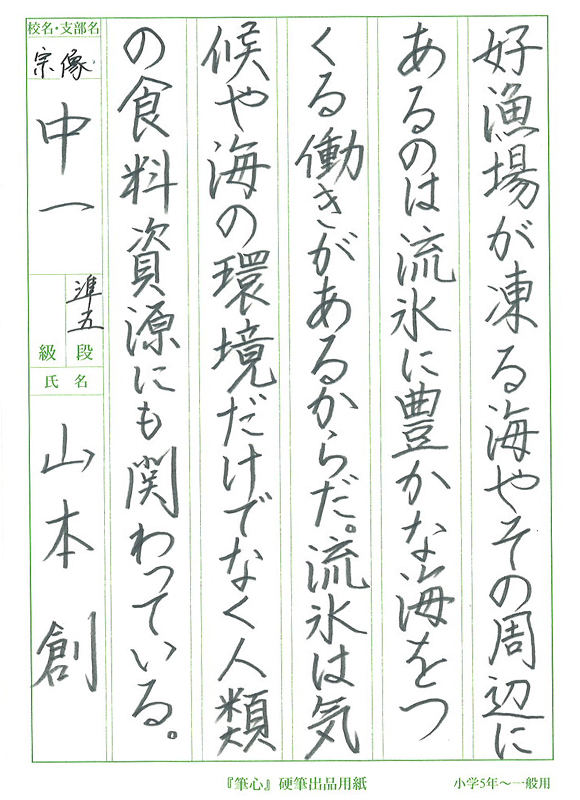 好漁場が凍る海やその周辺に
あるのは流氷に豊かな海をつ
くる働きがあるからだ。流氷は気
候や海の環境だけでなく人類
の食料資源にも関わっている。
校名・支部名
宗像
中一
準五
級 段
氏名
山本 創
『筆心』硬筆出品用紙
小学5年～一般用